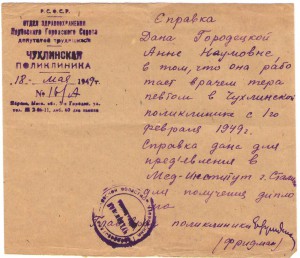 Р.С.Ф.С.Р.
ОТДЕЛ ЗДРАВООХРАНЕНИЯ
Городского Совета
депутатов трудящихся
ЧУХЛИНСКАЯ
ПОЛИКЛИНИКА
18 мая 1949 г.
№ 16/А
Справка
Дана Городецкой
Анне Наумовне
в том, что она рабо
тает врачем тера
певтом в Чухлинской
поликлинике с 1го
февраля 1949г.
Справка дана для
предъявления в
Мед-Институт г. Сталин
для получения дипло
ма
поликлиники
(Фридман)